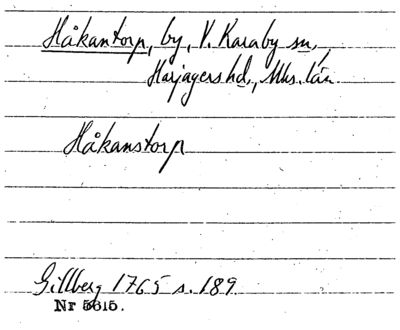 Håkantorp, by, V. Karaby sn,
Harjagers hd., Mlhs. län.
Håkanstorp
Gillberg 1765 s. 189
Nr 5615.